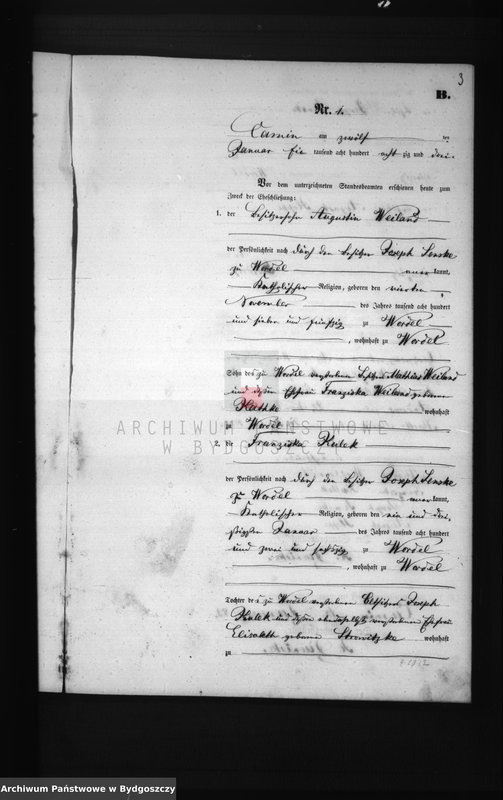 3
B.
Nr. 1.
Camin am zwölften
Januar ein tausend acht hundert achtzig und drei.
Vor dem unterzeichneten Standesbeamten erschienen heute zum
Zweck der Eheschließung:
1. der Besitzersohn Augustin Weiland
der Persönlichkeit nach durch den Besitzer Joseph Senske
zu Wordel anerkannt,
Katholischer Religion, geboren den vierten
November des Jahres tausend acht hundert
und sieben und fünfzig zu Wordel
, wohnhaft zu Wordel
Sohn des zu Wordel verstorbenen Besitzers Mathias Weiland
und dessen Ehefrau Franziska Weiland geborenen
wohnhaft
zu Wordel
ARCHIWUM PAŃSTWOWE
W BYDGOSZCZY
2. die Franziska Kulek
der Persönlichkeit nach durch den Besitzer Joseph Senske
zu Wordel anerkannt,
Katholischer Religion, geboren den ein und drei-
ßigsten Januar des Jahres tausend acht hundert
und zwei und sechszig zu Wordel
, wohnhaft zu Wordel
Tochter des zu Wordel verstorbenen Joseph
Kulek und dessen ebendaselbst verstorbenen Ehefrau
Elisabeth geborenen wohnhaft
zu
Archiwum Państwowe w Bydgoszczy